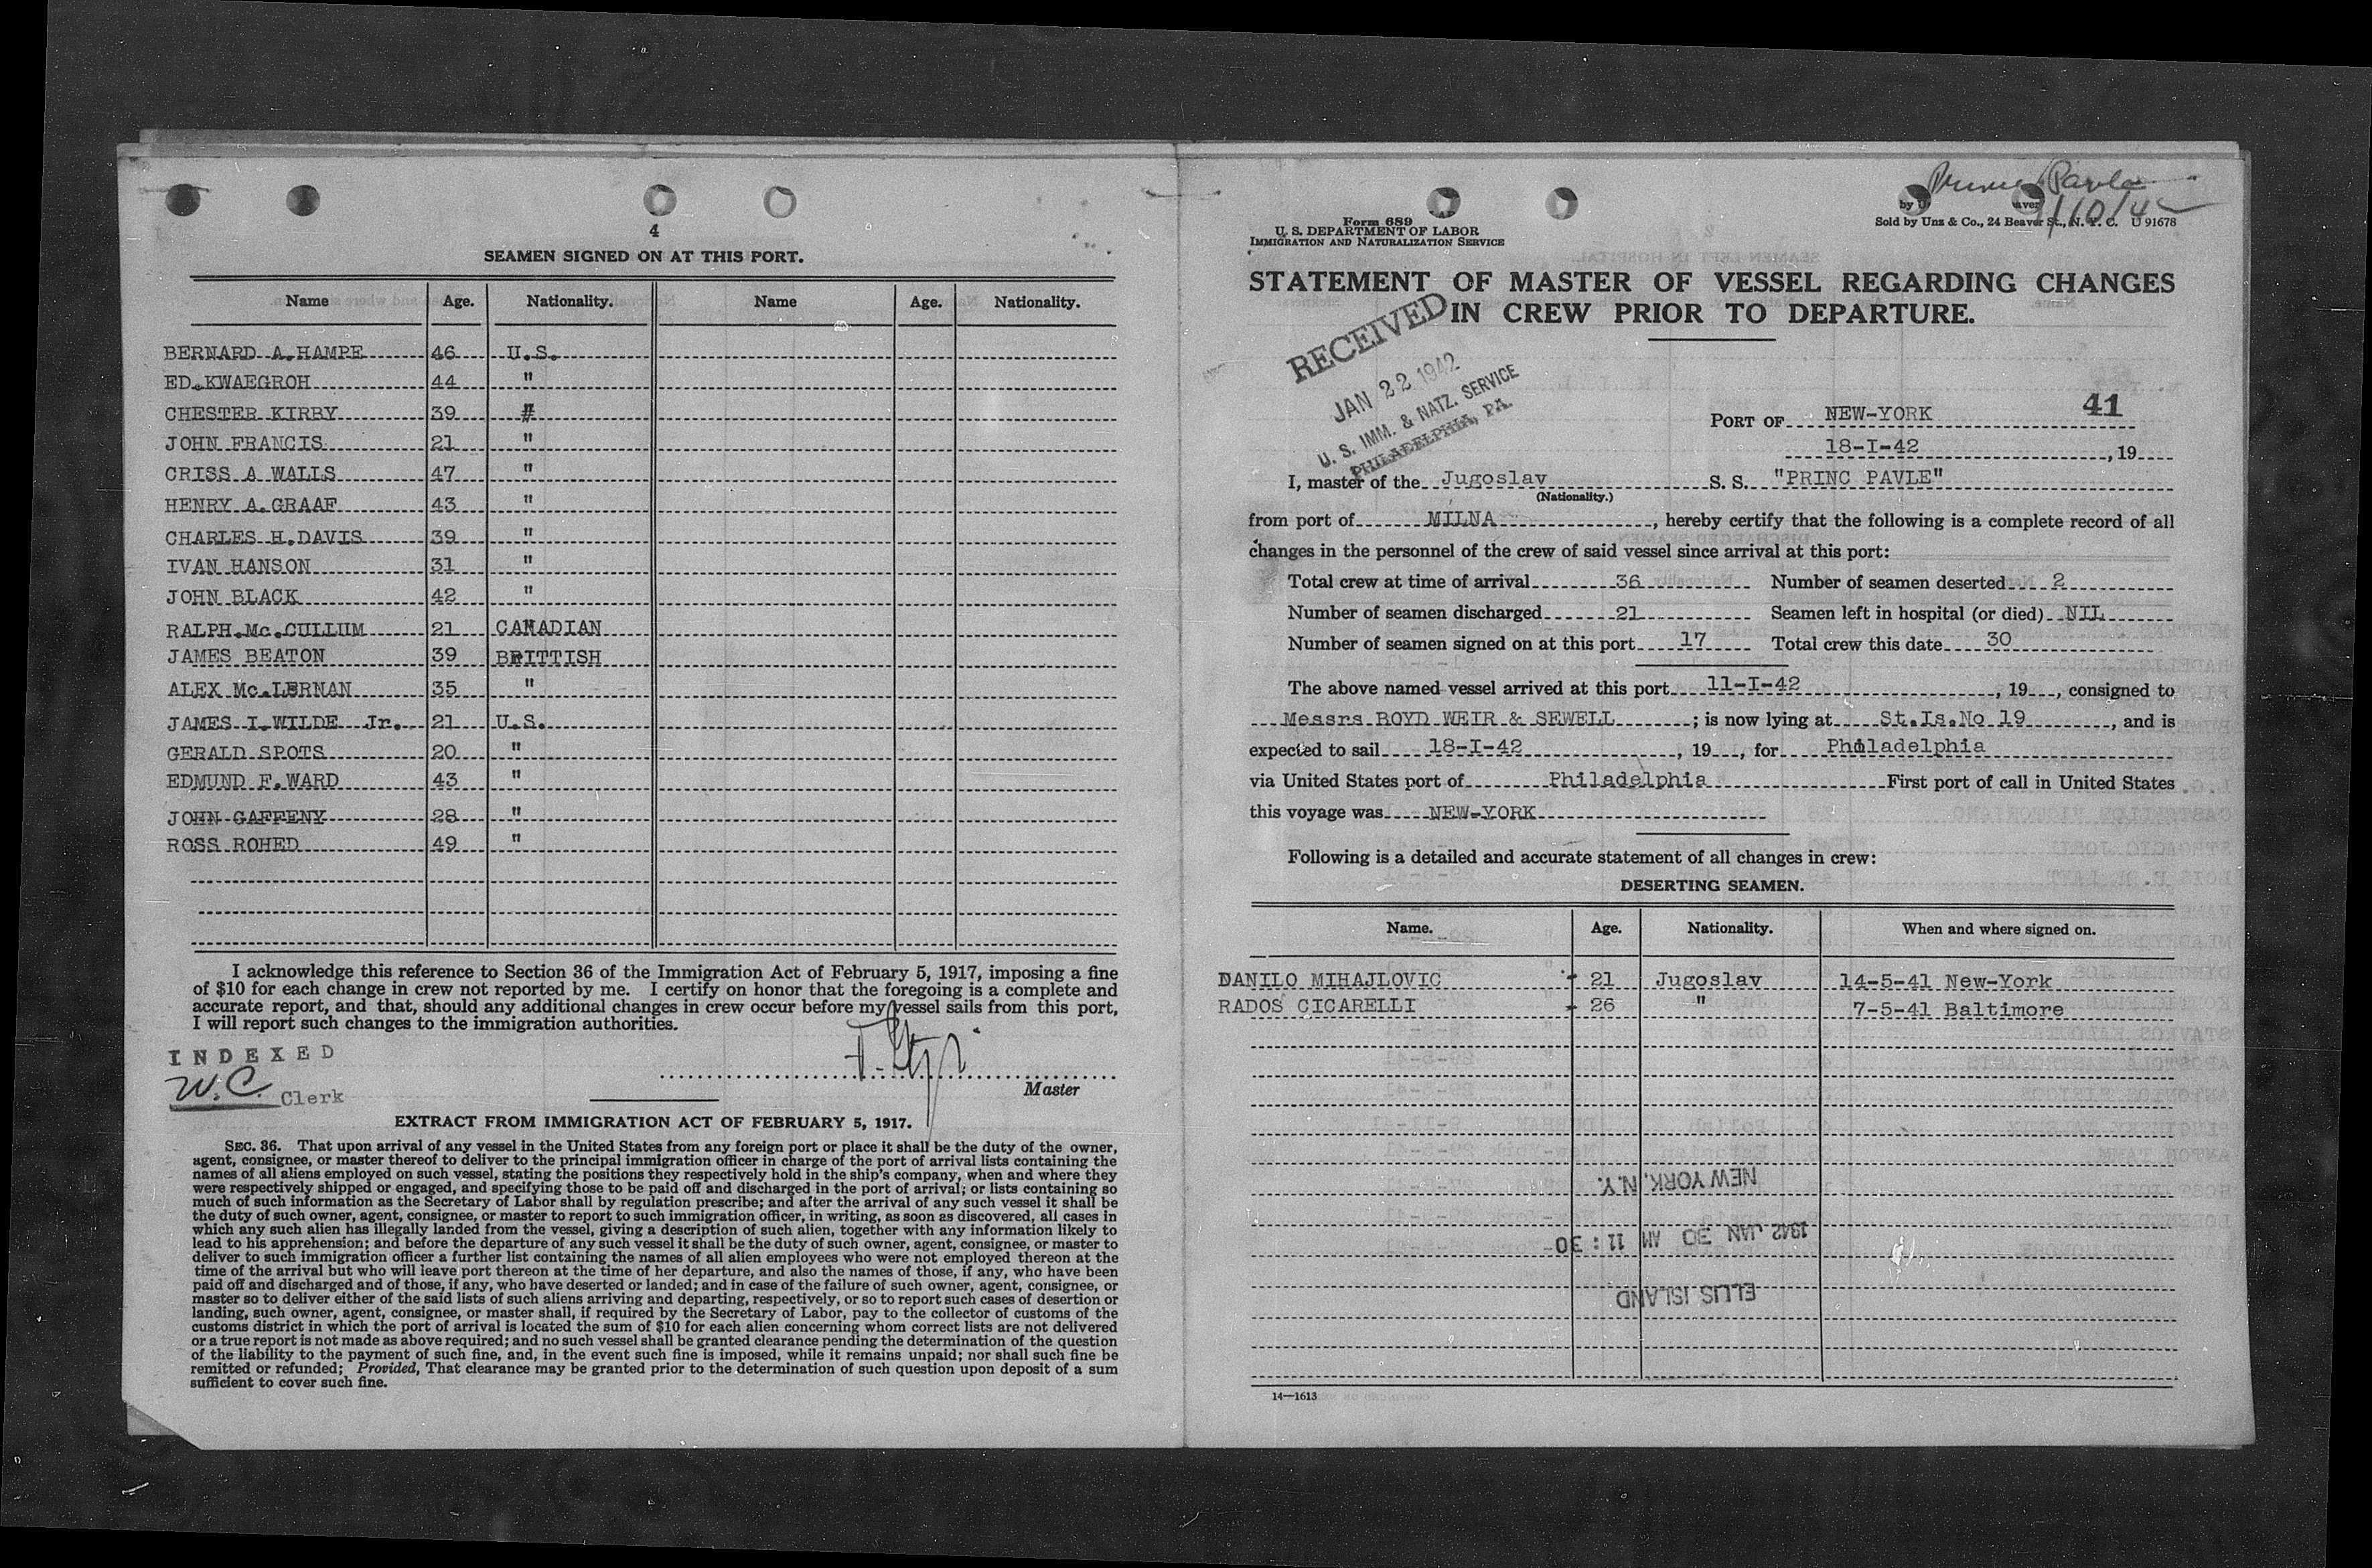 4
SEAMEN SIGNED ON AT THIS PORT.
Name Age. Nationality. Name Age. Nationality.
BERNARD A.HAMPE 46 U.S.
ED.KWAEGROH 44 "
CHESTER KIRBY 39 "
JOHN FRANCIS 21 "
CRISS A WALLS 47 "
HENRY A.GRAAF 43 "
CHARLES H.DAVIS 39 "
IVAN HANSON 31 "
JOHN BLACK 42 "
RALPH.Mc.CULLUM 21 CANADIAN
JAMES BEATON 39 BRITTISH
ALEX Mc.LERNAN 35 "
JAMES I.WILDE Jr. 21 U.S.
GERALD SPOTS 20 "
EDMUND F.WARD 43 "
JOHN GAFFENY 28 "
ROSS ROHED 49 "
I acknowledge this reference to Section 36 of the Immigration Act of February 5, 1917, imposing a fine
of $10 for each change in crew not reported by me. I certify on honor that the foregoing is a complete and
accurate report, and that, should any additional changes in crew occur before my vessel sails from this port,
I will report such changes to the immigration authorities.
INDEXED
W.C. Clerk
Master
EXTRACT FROM IMMIGRATION ACT OF FEBRUARY 5, 1917.
SEC. 36. That upon arrival of any vessel in the United States from any foreign port or place it shall be the duty of the owner,
agent, consignee, or master thereof to deliver to the principal immigration officer in charge of the port of arrival lists containing the
names of all aliens employed on such vessel, stating the positions they respectively hold in the ship's company, when and where they
were respectively shipped or engaged, and specifying those to be paid off and discharged in the port of arrival; or lists containing so
much of such information as the Secretary of Labor shall by regulation prescribe; and after the arrival of any such vessel it shall be
the duty of such owner, agent, consignee, or master to report to such immigration officer, in writing, as soon as discovered, all cases in
which any such alien has illegally landed from the vessel, giving a description of such alien, together with any information likely to
lead to his apprehension; and before the departure of any such vessel it shall be the duty of such owner, agent, consignee, or master to
deliver to such immigration officer a further list containing the names of all alien employees who were not employed thereon at the
time of the arrival but who will leave port thereon at the time of her departure, and also the names of those, if any, who have been
paid off and discharged and of those, if any, who have deserted or landed; and in case of the failure of such owner, agent, consignee, or
master so to deliver either of the said lists of such aliens arriving and departing, respectively, or so to report such cases of desertion or
landing, such owner, agent, consignee, or master shall, if required by the Secretary of Labor, pay to the collector of customs of the
customs district in which the port of arrival is located the sum of $10 for each alien concerning whom correct lists are not delivered
or a true report is not made as above required; and no such vessel shall be granted clearance pending the determination of the question
of the liability to the payment of such fine, and, in the event such fine is imposed, while it remains unpaid; nor shall such fine be
remitted or refunded; Provided, That clearance may be granted prior to the determination of such question upon deposit of a sum
sufficient to cover such fine.
Form 689
U. S. DEPARTMENT OF LABOR
IMMIGRATION AND NATURALIZATION SERVICE
Sold by Unz & Co., 24 Beaver St., N. Y. C. U 91678
STATEMENT OF MASTER OF VESSEL REGARDING CHANGES
IN CREW PRIOR TO DEPARTURE.
RECEIVED
JAN 22 1942
U. S. IMM. & NATZ. SERVICE
PHILADELPHIA, PA.
PORT OF NEW-YORK 41
18-I-42, 19
I, master of the Jugoslav S. S. "PRINC PAVLE"
(Nationality.)
from port of MILNA, hereby certify that the following is a complete record of all
changes in the personnel of the crew of said vessel since arrival at this port:
Total crew at time of arrival 36 Number of seamen deserted 2
Number of seamen discharged 21 Seamen left in hospital (or died) NIL
Number of seamen signed on at this port 17 Total crew this date 30
The above named vessel arrived at this port 11-I-42, 19, consigned to
Messrs BOYD WEIR & SEWELL; is now lying at St.Is.No 19, and is
expected to sail 18-I-42, 19, for Philadelphia
via United States port of Philadelphia First port of call in United States
this voyage was NEW-YORK
Following is a detailed and accurate statement of all changes in crew:
DESERTING SEAMEN.
Name. Age. Nationality. When and where signed on.
DANILO MIHAJLOVIC 21 Jugoslav 14-5-41 New-York
RADOS CICARELLI 26 " 7-5-41 Baltimore
NEW YORK, N.Y.
1942 JAN 30 AM 11:30
ELLIS ISLAND
14—1613